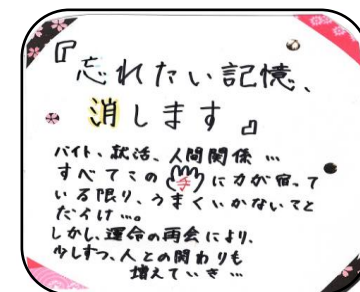 『忘れたい記憶、
消します』
バイト、就活、人間関係…
すべてこの手に力が宿って
いる限り、うまくいかないこと
だらけ…。
しかし、運命の再会により、
少しずつ、人との関わりも
増えていき…